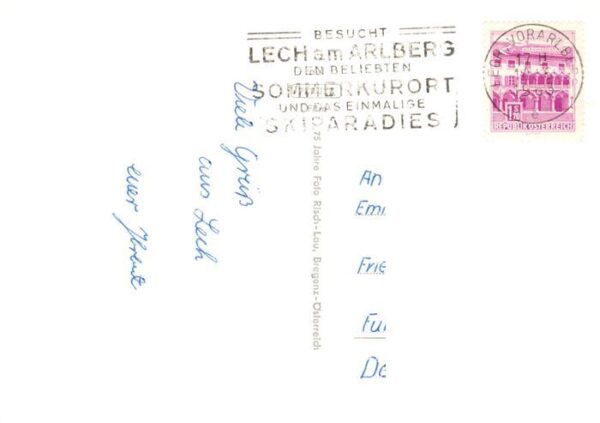 BESUCHT
LECH am ARLBERG
DEN BELIEBTEN
SOMMERKURORT
UND DAS EINMALIGE
SKIPARADIES
REPUBLIK ÖSTERREICH
Viele Grüß
aus Lech
euer
75 Jahre Foto Risch-Lau, Bregenz-Österreich
An
Emi
Frie
Fu
De